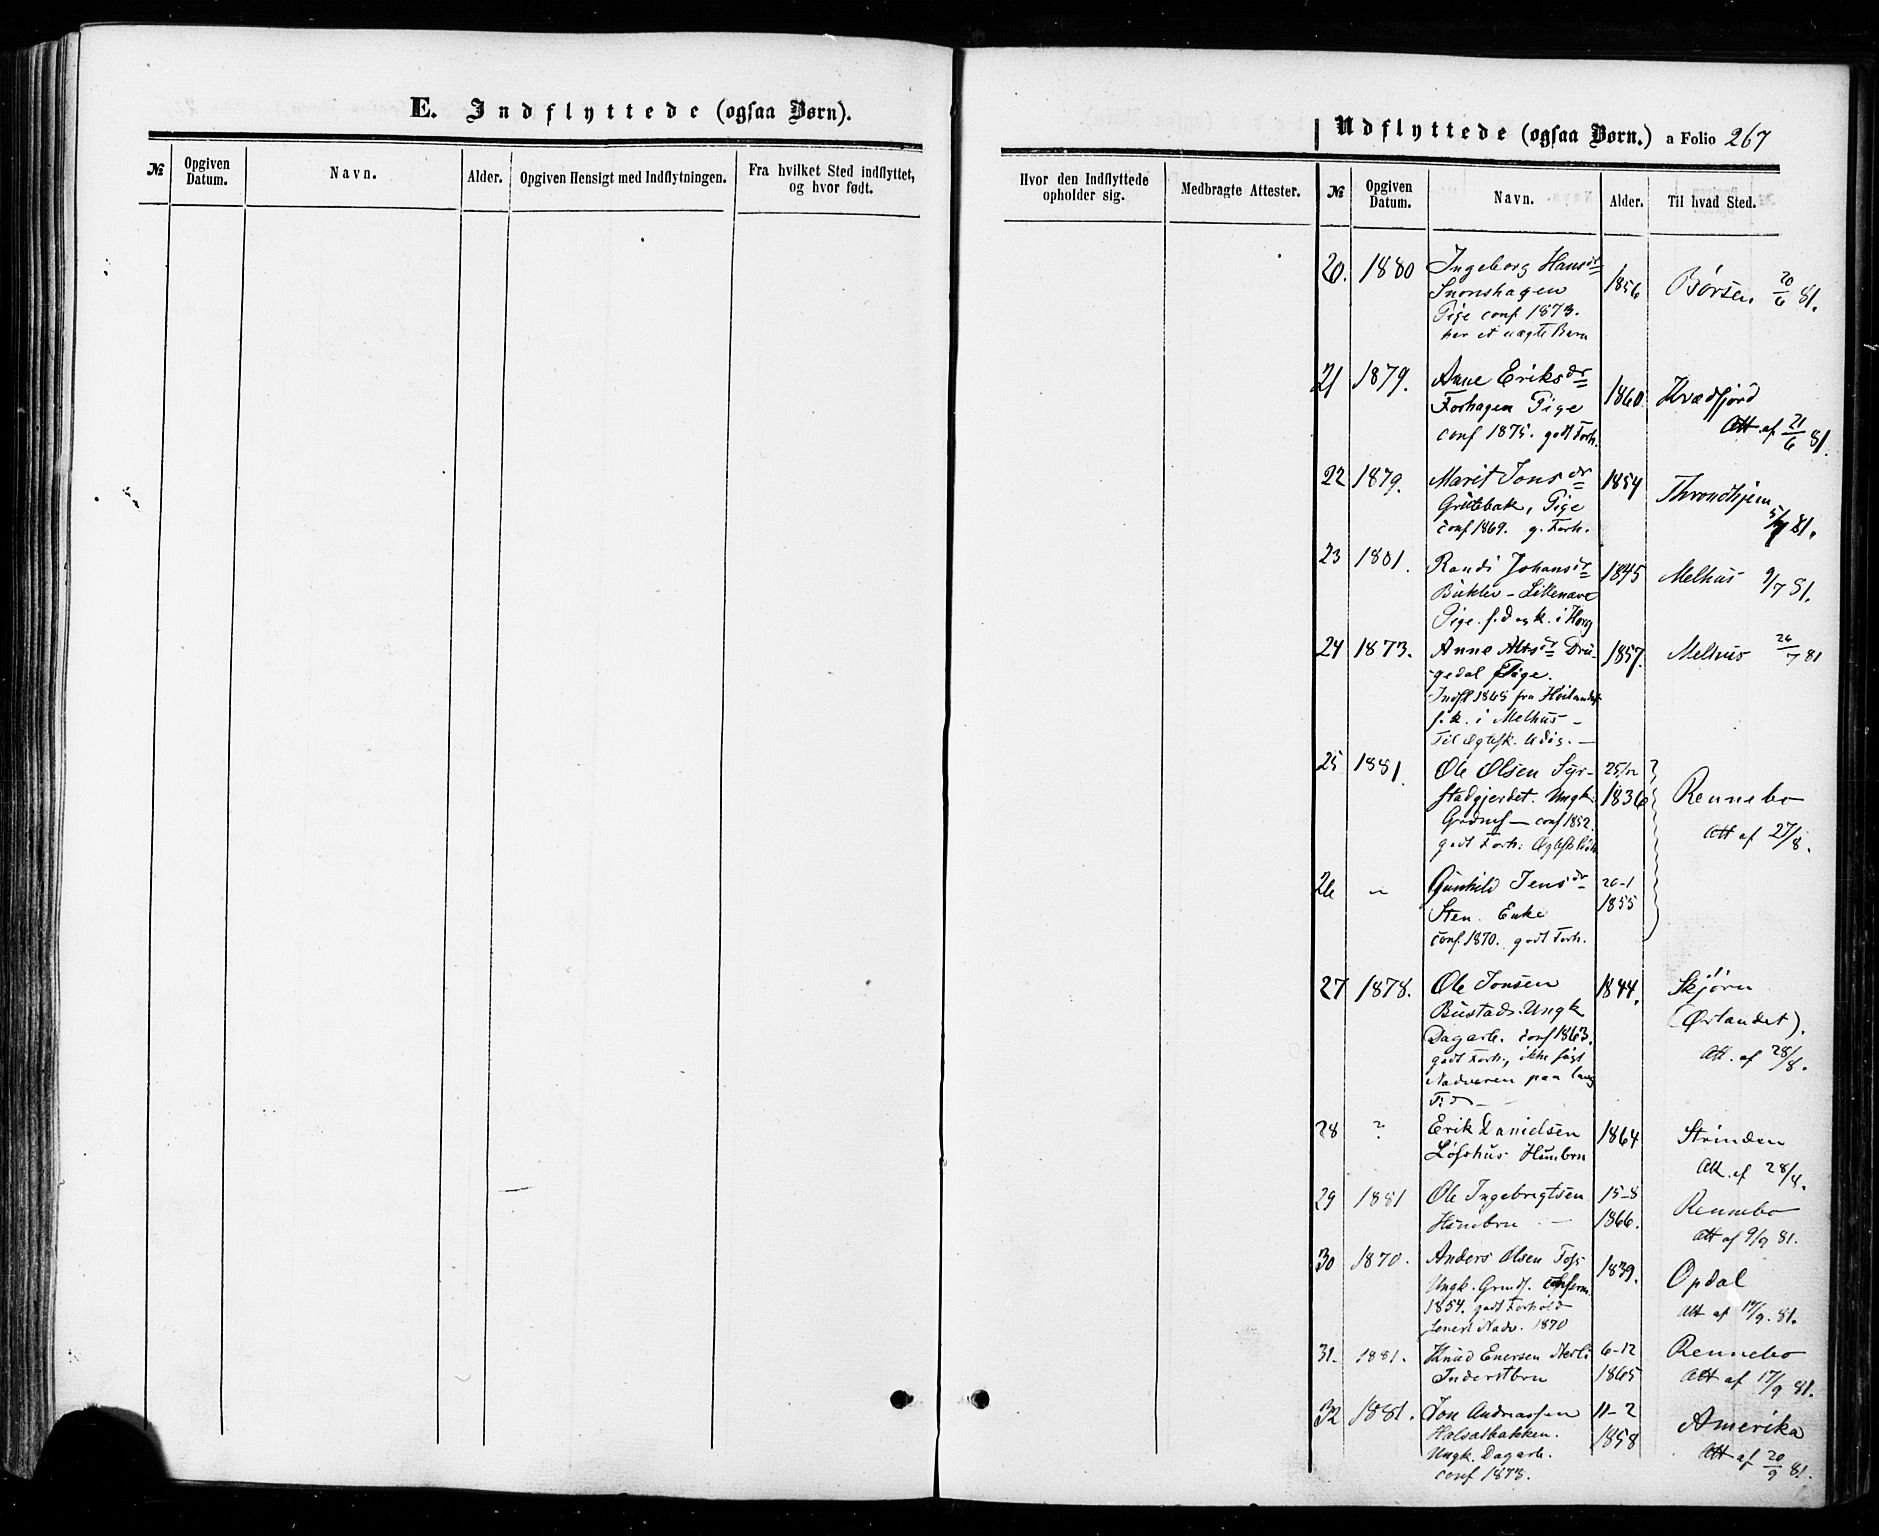 E. Indflyttede (ogsaa Børn).
№
Opgiven
Datum.
Navn.
Alder.
Opgiven Hensigt med Indflytningen.
Fra hvilket Sted indflyttet,
og hvor født.
Udflyttede (ogsaa Børn.) a Folio 267
Hvor den Indflyttede
opholder sig.
Medbragte Attester.
№
Opgiven
Datum.
Navn.
Alder.
Til hvad Sted.
20. 1880 Ingeborg Hansdr 1856 Børsen 20/6 81.
Pige conf 1873.
har et uægte Barn
21 1879. Anne Eriksdr 1860 Kvædfjord
Forhagen Pige Att. af 21/6 81.
conf 1875. godt Forh.
22 1879. Marit Jonsdr 1854 Throndhjem
Grütebak, Pige 81.
conf 1869. g. Forh.
23 1801. Randi Johansdr 1845 Melhus 9/7 81.
Pige. f. d og k. i Horg
24 1873. Anne dr Dru- 1857. Melhus 26/7 81
-gedal Pige.
Indfl 1865 fra
f. k. i Melhus –
Til Ægtesk. Udøs. –
25 1881. Ole Olsen Syr- 25/12
stadgjerdet. Ungk. 1836 Rennebo
Grdmf – conf 1852. Att af 27/8.
godt Forh.
26 – Gunhild Jensdr 20-1
Sten. Enke 1855
conf. 1870. godt Forh.
27 1878. Ole Jonsen 1844. Skjørn
Bustad. Ungk (Ørlandet).
Dagarb. conf 1863. Att. af 28/8.
godt Forh., ikke søgt
Nadveren paa lang
Tid –
28 ? Erik Danielsen 1864 Strinden
Løfshus Hümbrn Att. af 28/4.
29 1881 Ole Ingebrigtsen 15-8 Rennebo
Hümbrn – 1866. Att af 9/9 81.
30 1870. Anders Olsen Foss 1839. Opdal
Ungk. Grmdf. conferm.
1854. godt Forhold
senest Nadv. 1870
31. 1881. Knud Enersen Nerli 6-12 Rennebo
Inderstbrn 1865 Att af 17/9 81.
32 1881. Jon Andreassen 11-2 Amerika
Halsetbakken. 1858 Att af 20/9 81.
Ungk. Dagarb.
conf 1873.